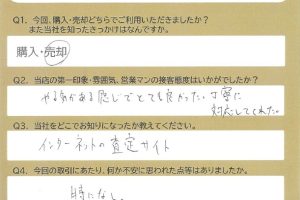 Q1. 今回、購入・売却どちらでご利用いただきましたか?
また当社を知ったきっかけはなんですか。
購入・売却
Q2. 当店の第一印象・雰囲気、営業マンの接客態度はいかがでしたか?
やる気がある感じでとても良かった。丁寧に
対応してくれた。
Q3. 当社をどこでお知りになったか教えてください。
インターネットの査定サイト
Q4. 今回の取引にあたり、何か不安に思われた点等はありましたか?
特になし。